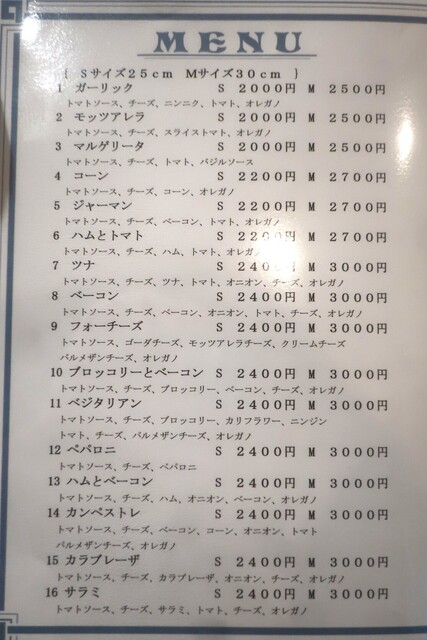 MENU
( Sサイズ25cm Mサイズ30cm )
1 ガーリック S 2000円 M 2500円
トマトソース、チーズ、ニンニク、トマト、オレガノ
2 モッツアレラ S 2000円 M 2500円
トマトソース、チーズ、スライストマト、オレガノ
3 マルゲリータ S 2000円 M 2500円
トマトソース、チーズ、トマト、バジルソース
4 コーン S 2200円 M 2700円
トマトソース、チーズ、コーン、オレガノ
5 ジャーマン S 2200円 M 2700円
トマトソース、チーズ、ベーコン、トマト、オレガノ
6 ハムとトマト S 2200円 M 2700円
トマトソース、チーズ、ハム、トマト、オレガノ
7 ツナ S 2400円 M 3000円
トマトソース、チーズ、ツナ、トマト、オニオン、チーズ、オレガノ
8 ベーコン S 2400円 M 3000円
トマトソース、チーズ、ベーコン、オニオン、トマト、チーズ、オレガノ
9 フォーチーズ S 2400円 M 3000円
トマトソース、ゴーダチーズ、モッツアレラチーズ、クリームチーズ
パルメザンチーズ、オレガノ
10 ブロッコリーとベーコン S 2400円 M 3000円
トマトソース、チーズ、ブロッコリー、ベーコン、チーズ、オレガノ
11 ベジタリアン S 2400円 M 3000円
トマトソース、チーズ、ブロッコリー、カリフラワー、ニンジン
トマト、チーズ、パルメザンチーズ、オレガノ
12 ペパロニ S 2400円 M 3000円
トマトソース、チーズ、ペパロニ
13 ハムとベーコン S 2400円 M 3000円
トマトソース、チーズ、ハム、オニオン、ベーコン、オレガノ
14 カンペストレ S 2400円 M 3000円
トマトソース、チーズ、ベーコン、コーン、オニオン、トマト
パルメザンチーズ、オレガノ
15 カラブレーザ S 2400円 M 3000円
トマトソース、チーズ、カラブレーザ、オニオン、チーズ、オレガノ
16 サラミ S 2400円 M 3000円
トマトソース、チーズ、サラミ、トマト、チーズ、オレガノ